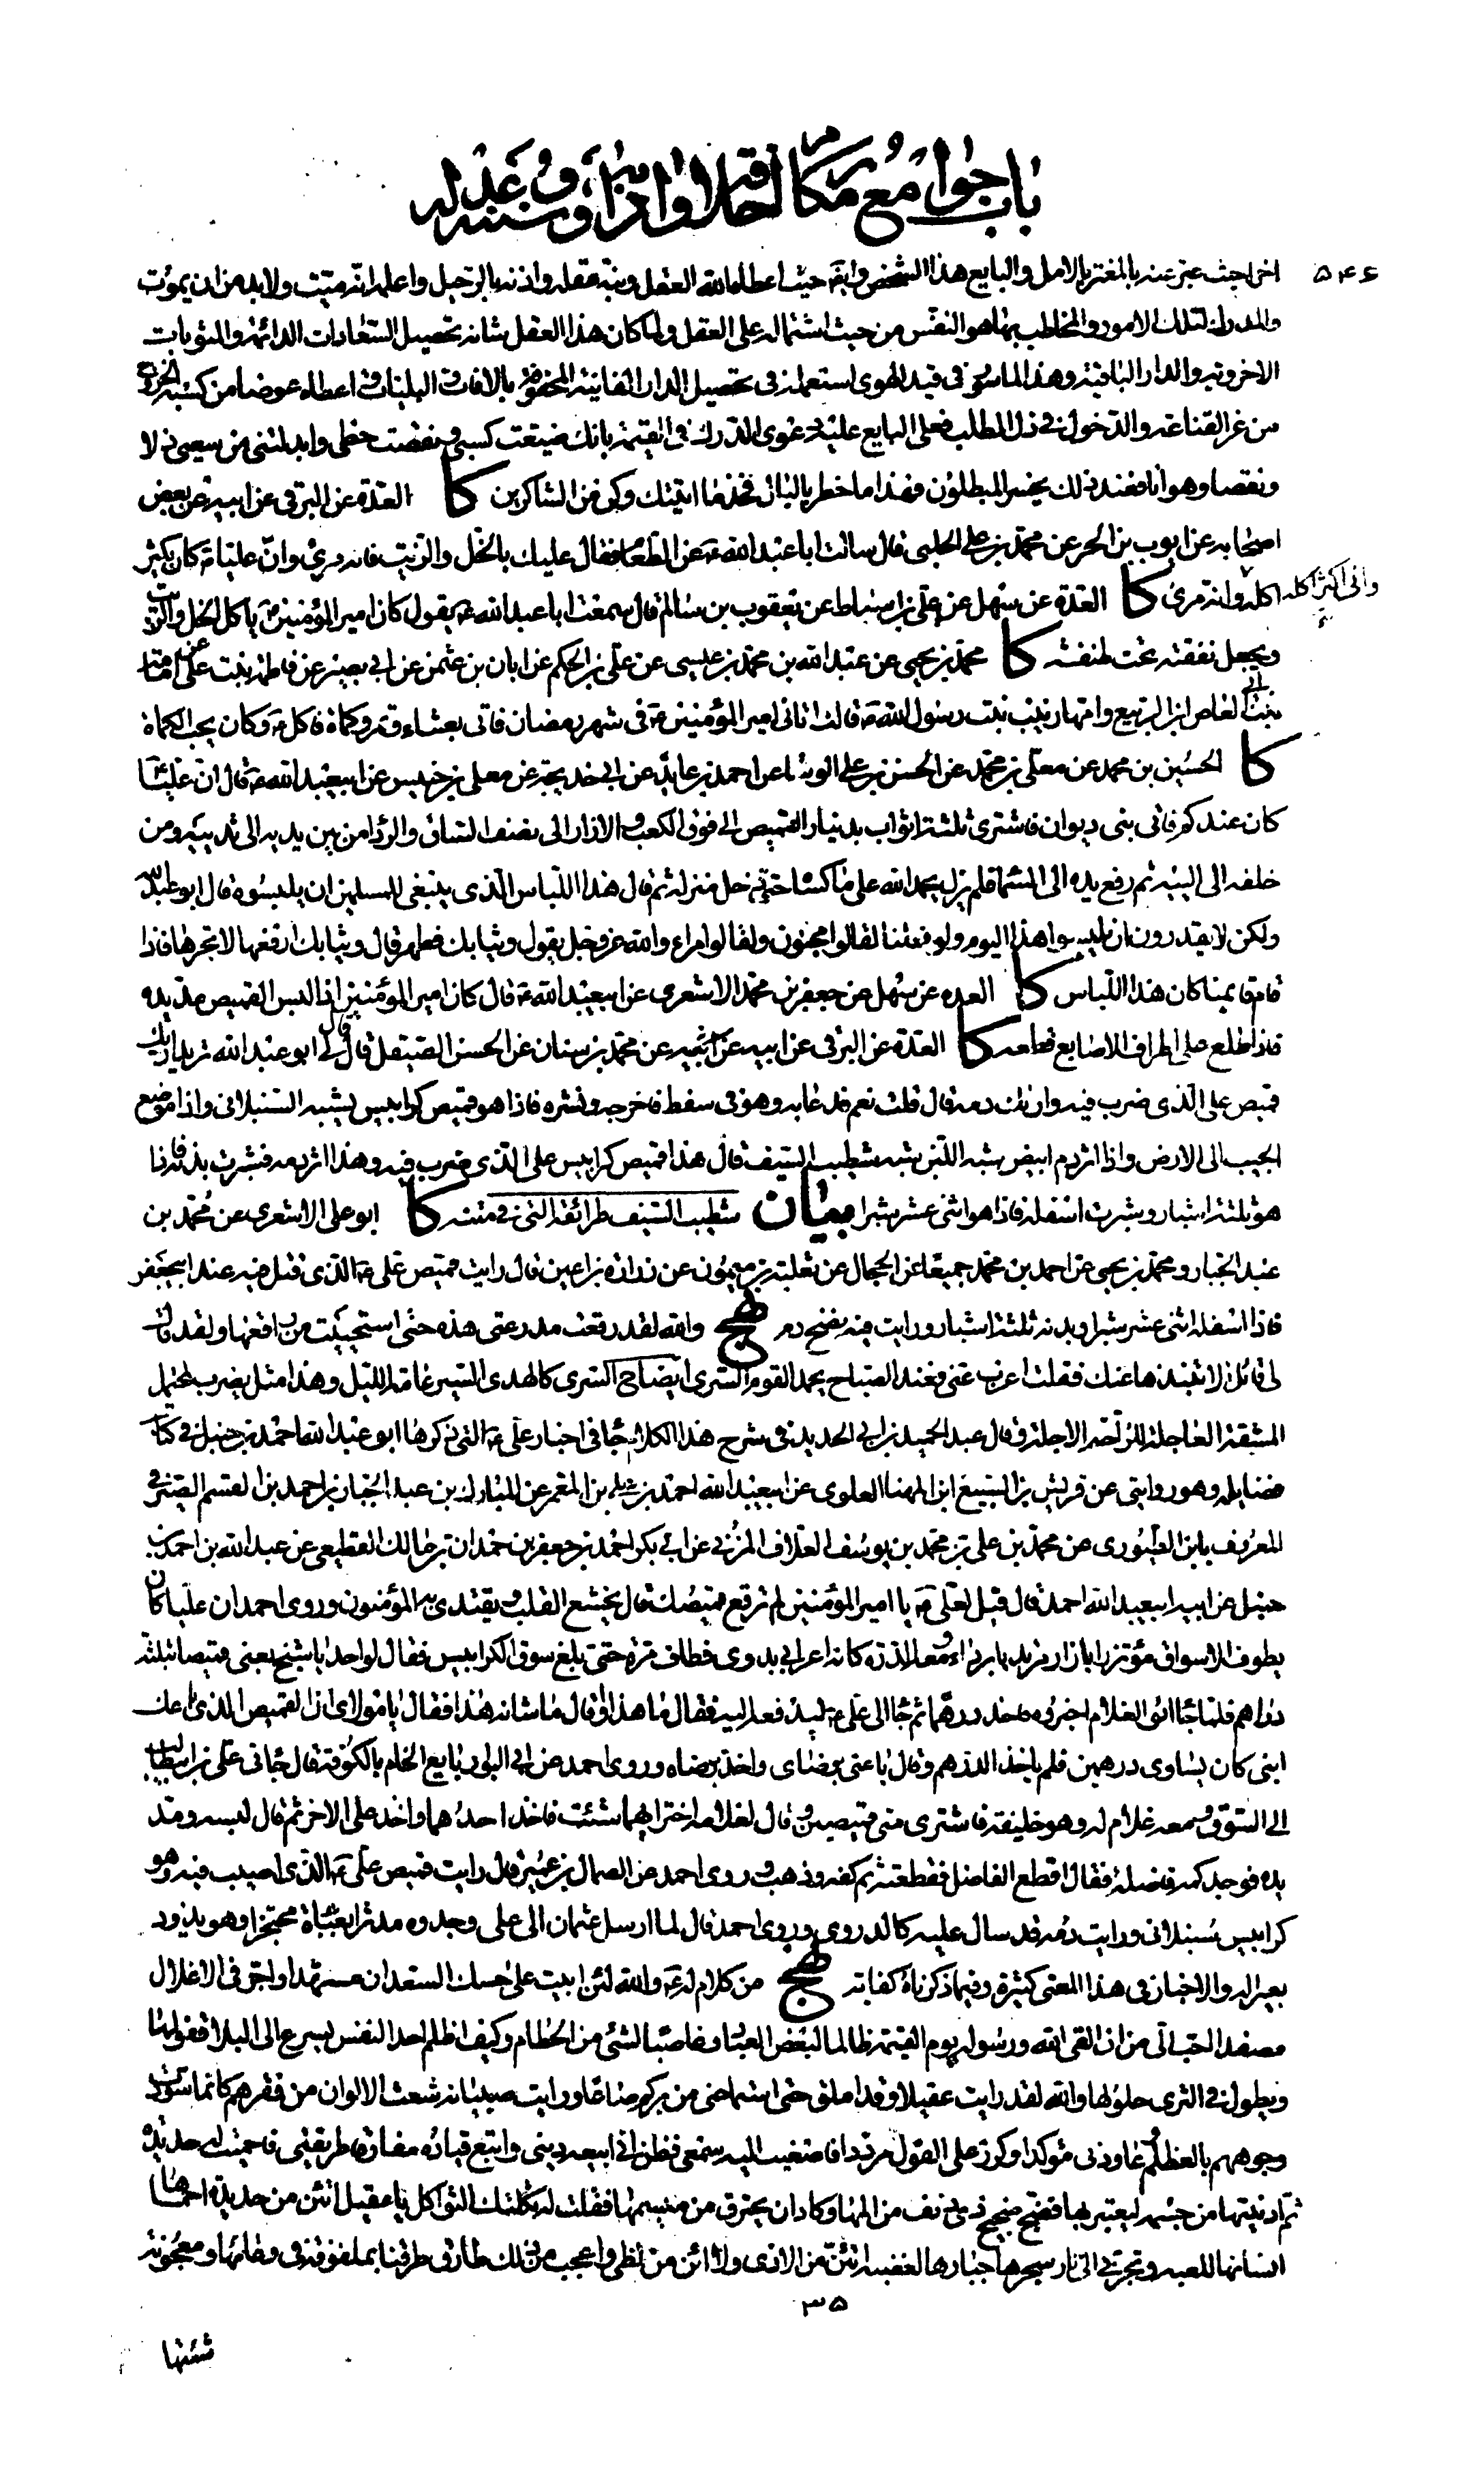 باب جوامع مكارم اخلاقه وادابه وسننه وعدله
٥٤٦
اخر حيث عبر عنه بالمغتر بالامل والبايع هذا الشخص وايقه حيث اعطاه الله العقل ونبه عقله واذنه بالرحيل واعلمه انه ميت ولا بد من ان يموت
والمدرك لتلك الامور والمخاطب بها هو النفس من حيث اشتماله على العقل ولما كان هذا العقل شانه تحصيل السعادات الدائمة والمثوبات
الاخروية والدار الباقية وهذا الماسور في قيد الهوى استعمله في تحصيل الدار الفانية المحفوفة بالافات والبليات واعطاه عوضا من كسبه الخروج
من عز القناعة والدخول في ذل المطلب فعلى البايع عليه دعوى الدرك في القيمة بانك ضيعت كسبي ونقصت حظي وابدلتني من سعيي ذلا
ونقصا وهوانا فعند ذلك يخسر المبطلون فهذا ما خطر بالبال فخذ ما اتيتك وكن من الشاكرين كا العدة عن البرقي عن ابيه عن بعض
اصحابه عن ايوب بن الحر عن محمد بن علي الحلبي قال سالت ابا عبد الله ع عن الطعام فقال عليك بالخل والزيت فانه مريء وان عليا ع كان يكثر
اكله وانه مرئ كا العدة عن سهل عن علي بن اسباط عن يعقوب بن سالم قال سمعت ابا عبد الله ع يقول كان امير المؤمنين ع ياكل الخل والزيت
واني اكثر اكله
ويجعل نفقته تحت طنفسته كا محمد بن يحيى عن عبد الله بن محمد بن عيسى عن علي بن الحكم عن ابان بن عثمن عن ابي بصير عن فاطمة بنت علي عن امامة
بنت ابي العاص ابن الربيع وامها زينب بنت رسول الله ص قالت اتاني امير المؤمنين ع في شهر رمضان فاتي بعشاء وتمر وكماة فاكل ع وكان يحب الكماة
كا الحسين بن محمد عن معلى بن محمد عن الحسن بن علي الوشاء عن احمد بن عايذ عن ابي خديجة عن معلى بن خنيس عن ابيعبد الله ع قال ان عليا
كان عندكم فاتى بني ديوان فاشترى ثلثة اثواب بدينار القميص الى فوق الكعب والازار الى نصف الساق والرداء من بين يديه الى ثدييه ومن
خلفه الى اليتيه ثم رفع يده الى السماء فلم يزل يحمد الله على ما كساه حتى دخل منزله ثم قال هذا اللباس الذي ينبغي للمسلمين ان يلبسوه قال ابو عبد الله
ولكن لا يقدرون ان يلبسوا هذا اليوم ولو فعلنا لقالوا مجنون ولقالوا مراء والله عز وجل يقول وثيابك فطهر قال وثيابك ارفعها لا تجرها فاذا
قام قايمنا كان هذا اللباس كا العدة عن سهل عن جعفر بن محمد الاشعري عن ابيعبد الله ع قال كان امير المؤمنين اذا لبس القميص مد يده
فاذا طلع على اطراف الاصابع قطعه كا العدة عن البرقي عن ابيه عن محمد بن سنان عن الحسن الصيقل قال قال لي ابو عبد الله تريد اريك
قميص علي الذي ضرب فيه واريك دمه قال قلت نعم فدعا به وهو في سفط فاخرجه ونشره فاذا هو قميص كرابيس يشبه السنبلاني واذا موضع
الجيب الى الارض واذا اثر دم ابيض شبه اللبن شبه شطيب السيف قال هذا قميص كرابيس علي الذي ضرب فيه وهذا اثر دمه فشبرت بدنه فاذا
هو ثلثة اشبار وشبرت اسفله فاذا هو اثنى عشر شبرا بيان شطيب السيف طرائقه التي في متنه كا ابو علي الاشعري عن محمد بن
عبد الجبار ومحمد بن يحيى عن احمد بن محمد جميعا عن الحجال عن ثعلبة بن ميمون عن زرارة بن اعين قال رايت قميص علي ع الذي قتل فيه عند ابيجعفر
فاذا اسفله اثنى عشر شبرا وبدنه ثلثة اشبار ورايت فيه نضح دم نهج والله لقد رقعت مدرعتي هذه حتى استحييت من راقعها ولقد قال
لي قائل الا تنبذها عنك فقلت اعزب عني فعند الصباح يحمد القوم السرى ايضاح السرى كالهدى السير عامة الليل وهذا مثل يضرب لمحتمل
المشقة العاجلة للراحة الاجلة وقال عبد الحميد بن ابي الحديد في شرح هذا الكلام جاء في اخبار علي ع التي ذكرها ابو عبد الله احمد بن حنبل في كتاب
فضايله وهو روايتي عن قريش بن السبيع ابن المهنا العلوي عن ابيعبد الله احمد بن علي بن المعمر عن المبارك بن عبد الجبار بن احمد بن القسم الصيرفي
المعروف بابن الطيوري عن محمد بن علي بن محمد بن يوسف العلاف المزني عن ابي بكر احمد بن جعفر بن حمدان بن مالك القطيعي عن عبد الله بن احمد بن
حنبل عن ابيه ابيعبد الله احمد قال قيل لعلي ع يا امير المؤمنين لم ترقع قميصك قال يخشع القلب ويقتدي به المؤمنون وروى احمد ان عليا كان
يطوف الاسواق مؤتزرا بازار مرتديا برداء ومعه الدرة كانه اعرابي بدوي فطاف مرة حتى بلغ سوق الكرابيس فقال لواحد يا شيخ بعني قميصا بثلثة
دراهم فلما جاء ابو الغلام اخبروه فاخذ درهما ثم جاء الى علي ع ليدفعه اليه فقال ما هذا او قال ما شانه هذا فقال يا مولاي ان القميص الذي باعك
ابني كان يساوي درهمين فلم ياخذ الدرهم وقال باعني برضاي واخذ برضاه وروى احمد عن ابي البوار بايع الخام بالكوفة قال جاءني علي بن ابيطالب
الى السوق ومعه غلام له وهو خليفة فاشترى مني قميصين وقال لغلامه اختر ايهما شئت فاخذ احدهما واخذ علي الاخر ثم قال لبسه ومد
يده فوجد كمه فاضلة فقال اقطع الفاضل فقطعته ثم كفه وذهب وروى احمد عن الصمال بن عمير قال رايت قميص علي ع الذي اصيب فيه وهو
كرابيس سنبلاني ورايت دمه قد سال عليه كالدردي وروى احمد قال لما ارسل عثمان الى علي وجدوه مدثرا بعباة محتجزا وهو يذود
بعيرا له والاخبار في هذا المعنى كثيرة وفيما ذكرناه كفاية نهج من كلام له ع والله لئن ابيت على حسك السعدان مسهدا واجر في الاغلال
مصفدا احب الي من ان القى الله ورسوله يوم القيمة ظالما لبعض العباد وغاصبا لشئ من الحطام وكيف اظلم احدا لنفس يسرع الى البلا قفولها
ويطول في الثرى حلولها والله لقد رايت عقيلا وقد املق حتى استماحني من بركم صاعا ورايت صبيانه شعث الالوان من فقرهم كانما سودت
وجوههم بالعظلم وعاودني مؤكدا وكرر على القول مرددا فاصغيت اليه سمعي فظن اني ابيعه ديني واتبع قياده مفارقا طريقتي فاحميت له حديدة
ثم ادنيتها من جسمه ليعتبر بها فضج ضجيج ذي دنف من المها وكاد ان يحترق من ميسمها فقلت له ثكلتك الثواكل يا عقيل اتئن من حديدة احماها
انسانها للعبه وتجرني الى نار سجرها جبارها لغضبه اتئن من الاذى ولا ائن من لظى واعجب من ذلك طارق طرقنا بملفوفة في وعائها ومعجونة
٣٥
شنئتها